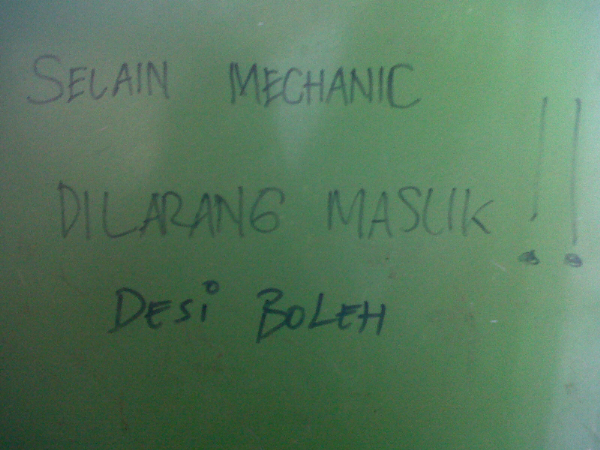 SELAIN MECHANIC
DILARANG MASUK !!
DESi BOLEH